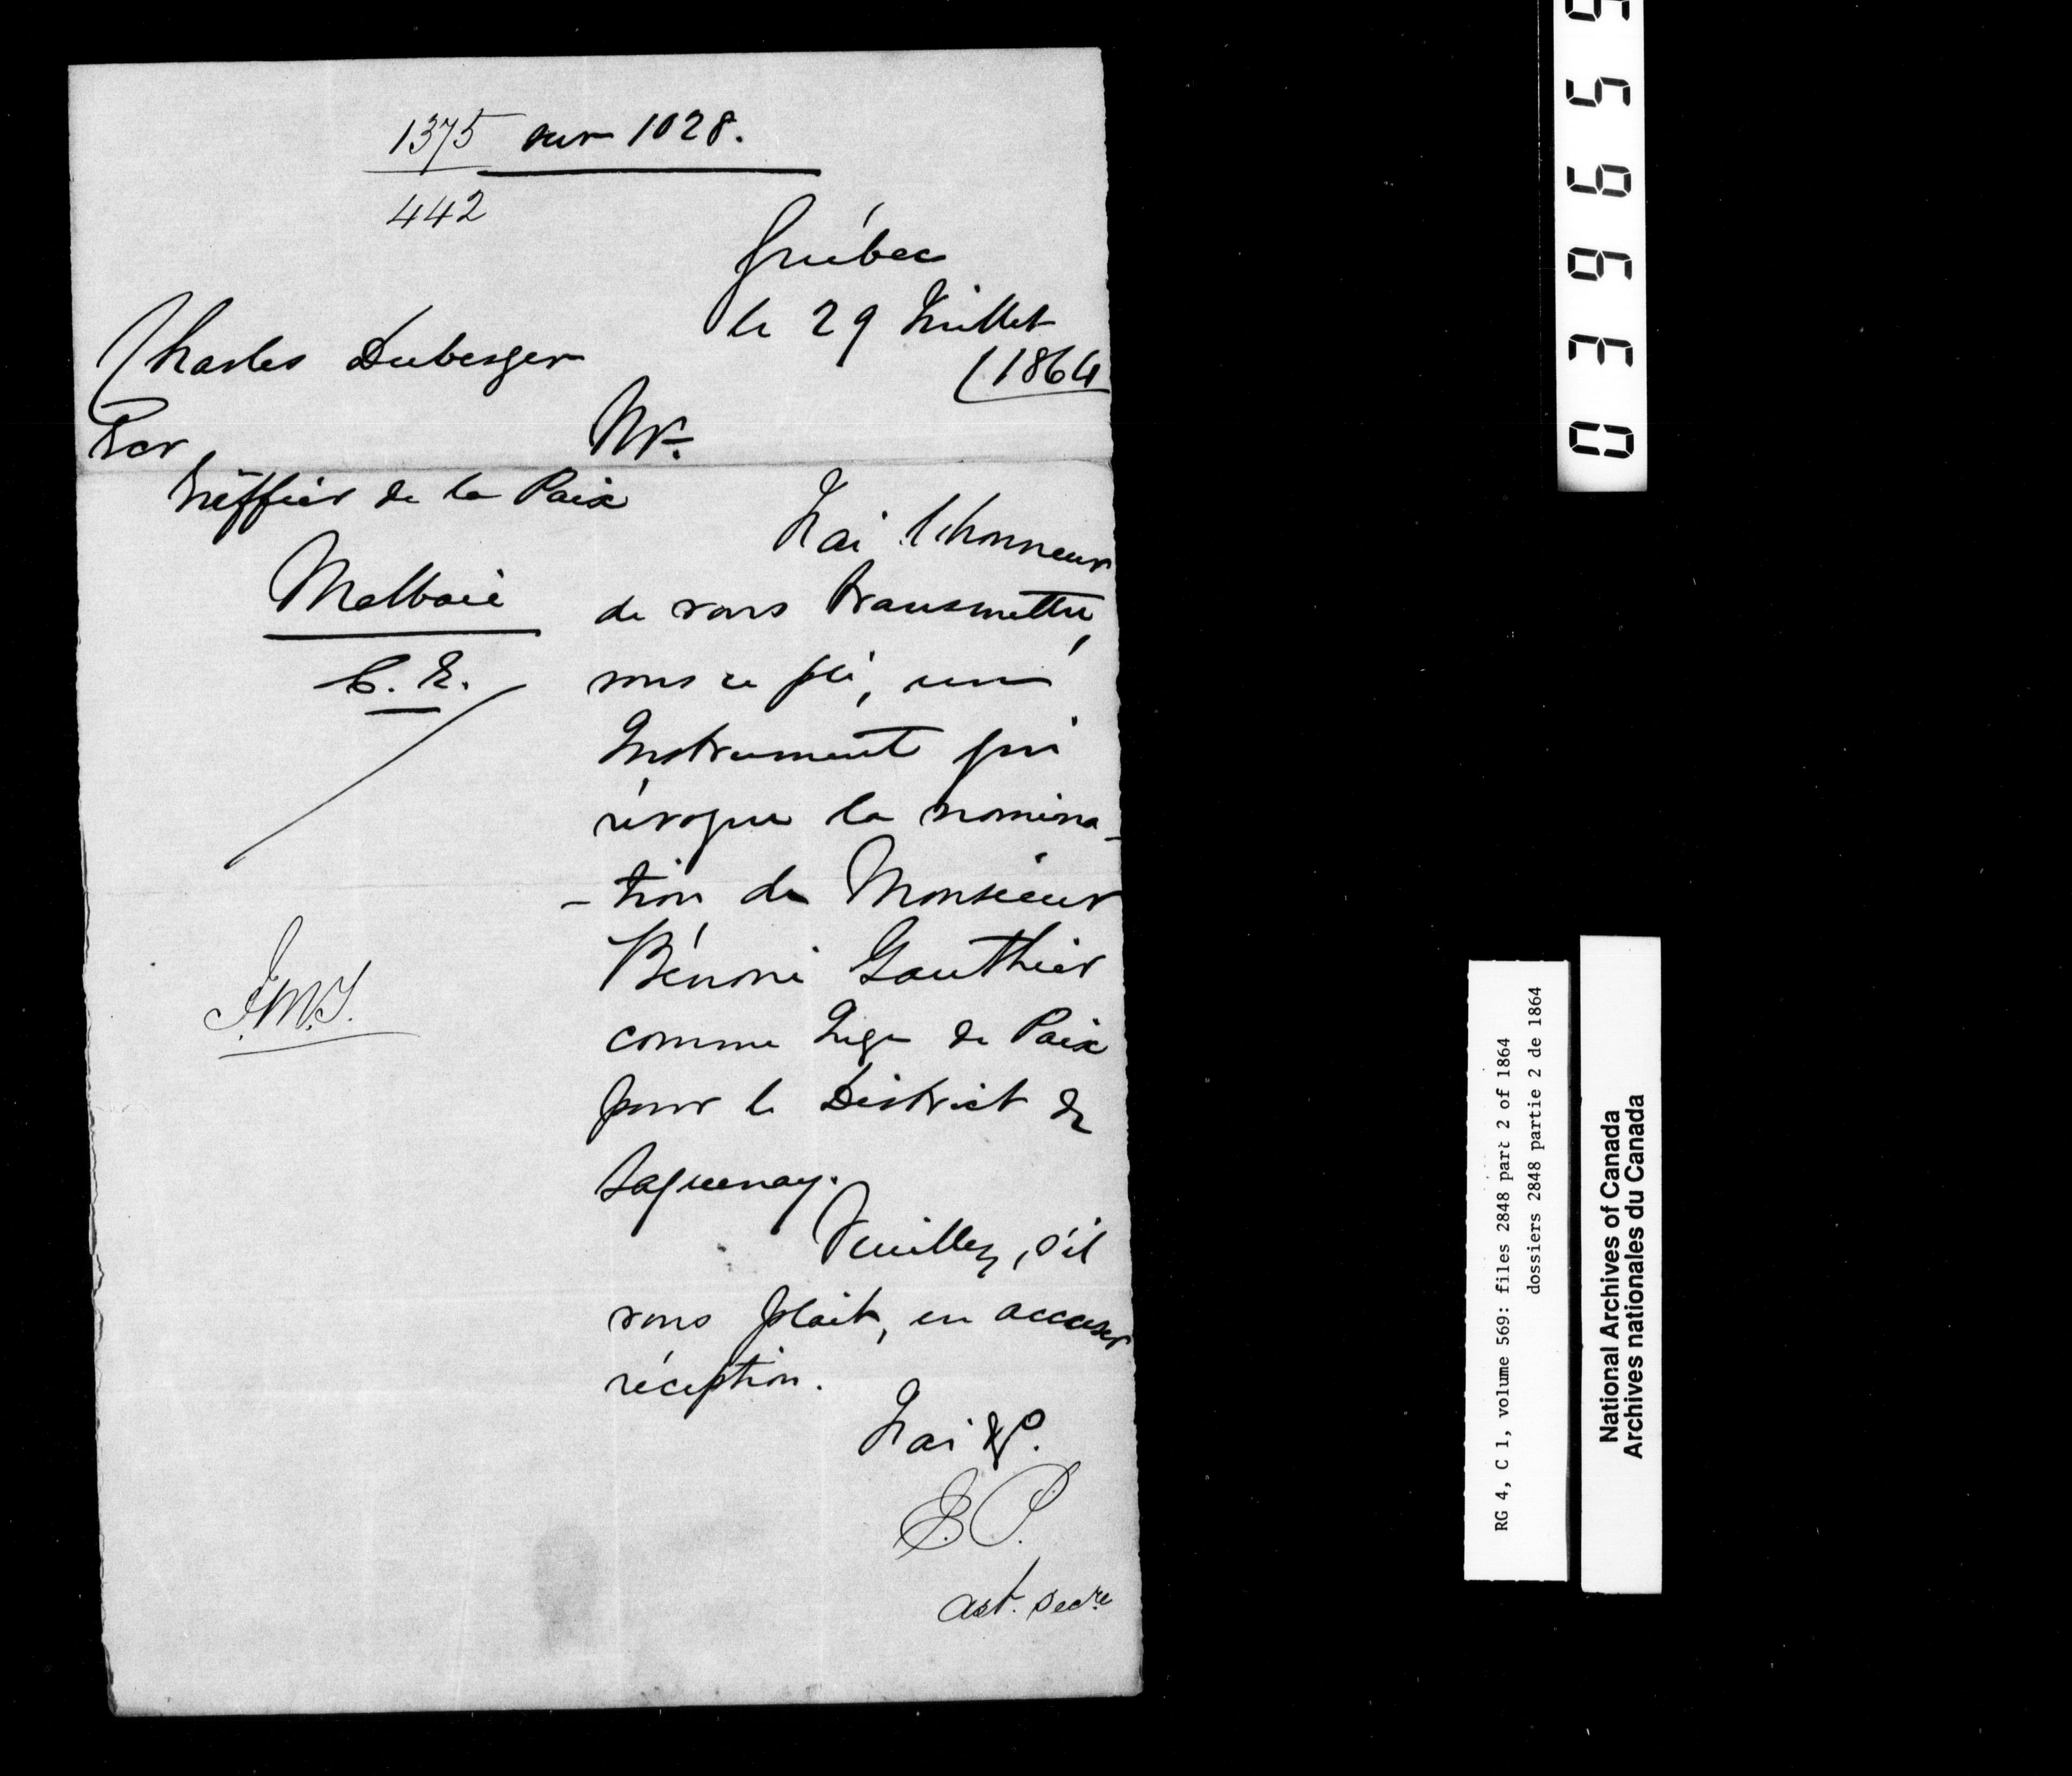 1375 sur 1028.
442
Québec
le 29 Juillet
(1864
Charles Duberger
Ecr
Greffier de la Paix
Malbaie
C. E.
Mr.
J'ai l'honneur
de vous transmettre,
sous ce pli, un
Instrument qui
révoque la nomina-
-tion de Monsieur
Bénoni Gauthier
comme Juge de Paix
pour le District de
Saguenay.
Veuillez, s'il
vous plait, en accuser
réception.
J'ai &c.
E.P.
ast. secre
RG 4, C 1, volume 569: files 2848 part 2 of 1864
dossiers 2848 partie 2 de 1864
National Archives of Canada
Archives nationales du Canada